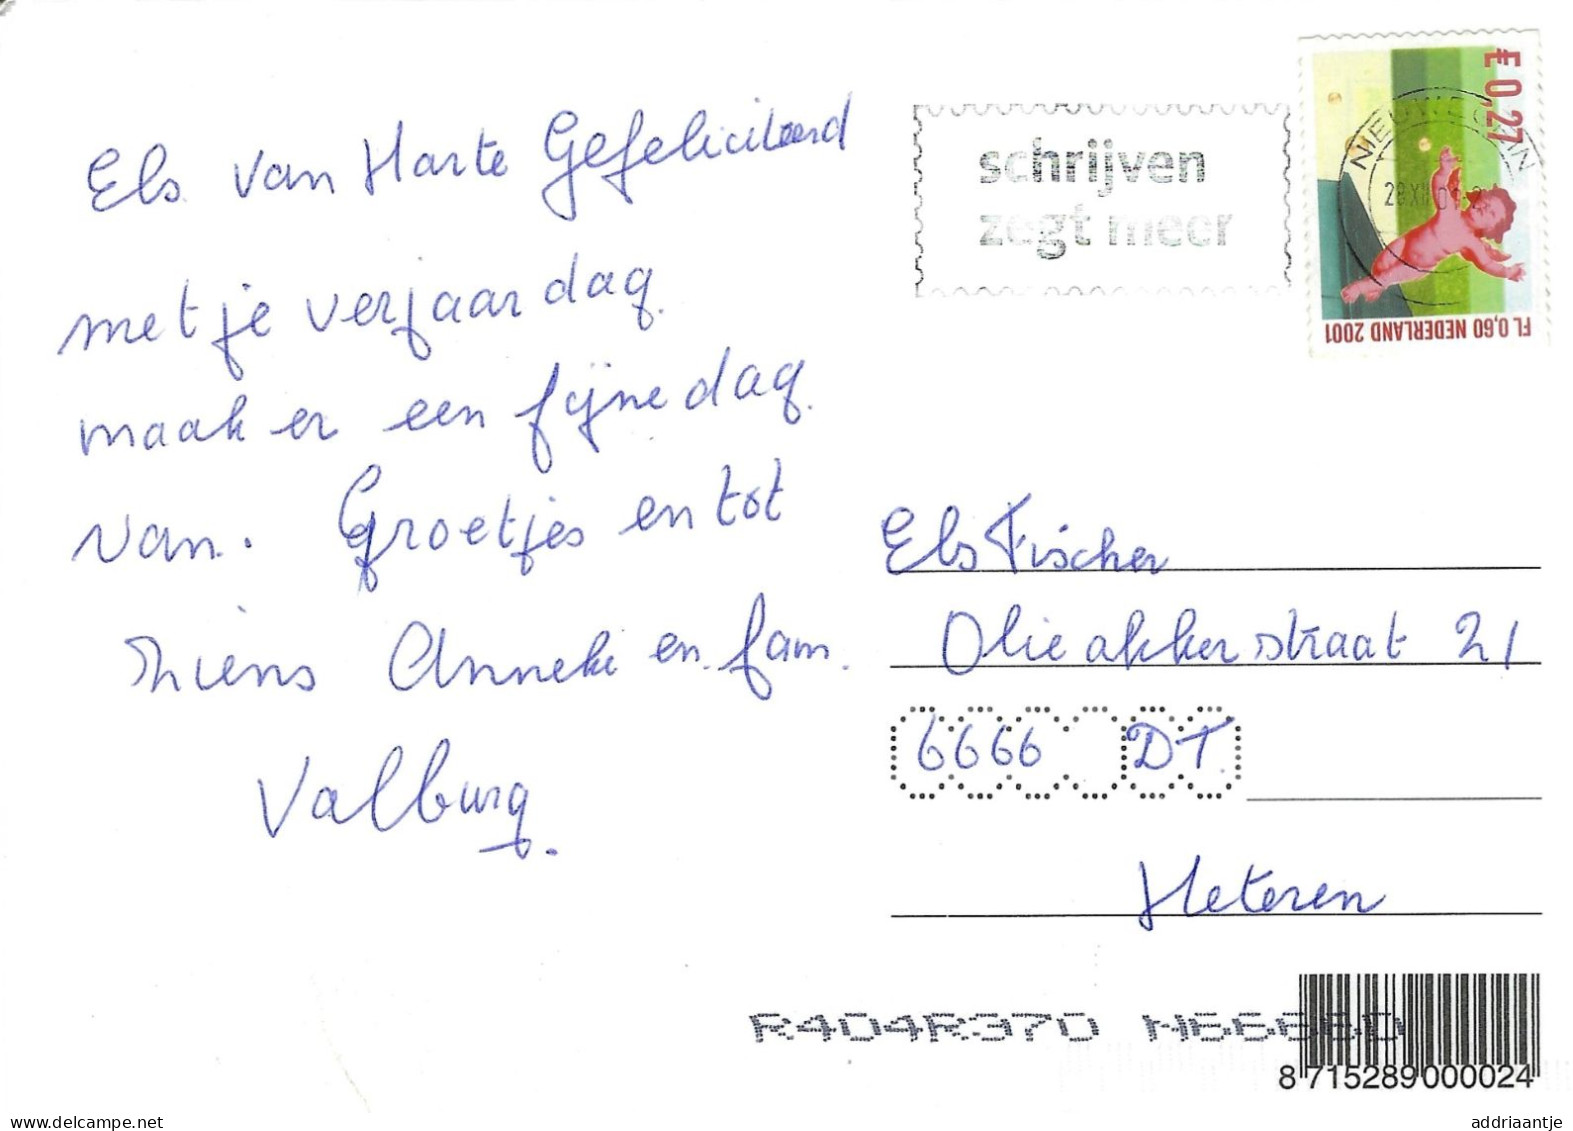 Els van Harte Gefeliciteerd
met je verjaardag.
maak er een fijne dag.
van. Groetjes en tot
ziens Anneke en fam.
Valburg.
schrijven
zegt meer
€ 0,27
NIEUWEGEIN
FL 0,60 NEDERLAND 2001
Els Fischer
Olieakkerstraat 21
6666 DT
Heteren
R404R370 N66660
8 715289 000024
www.delcampe.net
addriaantje